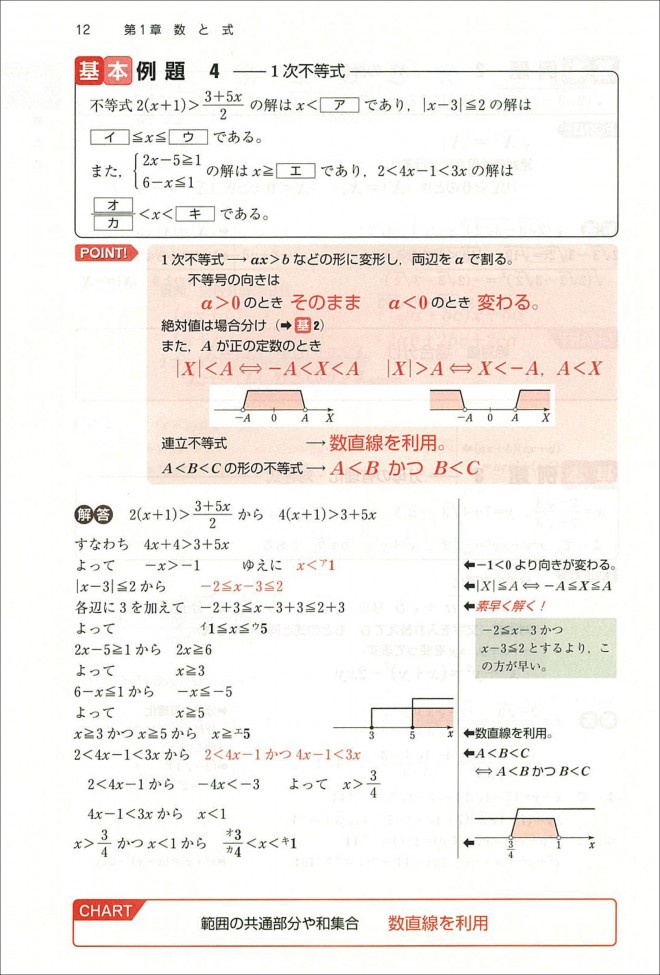 12 第1章 数と式
基本 例題 4 ── 1次不等式
不等式 2(x+1)>\frac{3+5x}{2} の解は x< ア であり，|x-3|≦2 の解は
イ ≦x≦ ウ である。
また，{2x-5≧1 の解は x≧ エ であり，2<4x-1<3x の解は
6-x≦1
オ/カ <x< キ である。
POINT!
1次不等式 → ax>b などの形に変形し，両辺を a で割る。
不等号の向きは
a>0 のとき そのまま a<0 のとき 変わる。
絶対値は場合分け（➡基2）
また，A が正の定数のとき
|X|<A ⇔ -A<X<A |X|>A ⇔ X<-A, A<X
-A 0 A X -A 0 A X
連立不等式 → 数直線を利用。
A<B<C の形の不等式 → A<B かつ B<C
解答 2(x+1)>\frac{3+5x}{2} から 4(x+1)>3+5x
すなわち 4x+4>3+5x
よって -x>-1 ゆえに x<ア1 ⬅-1<0 より向きが変わる。
|x-3|≦2 から -2≦x-3≦2 ⬅|X|≦A ⇔ -A≦X≦A
各辺に 3 を加えて -2+3≦x-3+3≦2+3 ⬅素早く解く！
よって イ1≦x≦ウ5 -2≦x-3 かつ
2x-5≧1 から 2x≧6 x-3≦2 とするより，こ
よって x≧3 の方が早い。
6-x≦1 から -x≦-5
よって x≧5 3 5 x
x≧3 かつ x≧5 から x≧エ5 ⬅数直線を利用。
2<4x-1<3x から 2<4x-1 かつ 4x-1<3x ⬅A<B<C
⇔ A<B かつ B<C
2<4x-1 から -4x<-3 よって x>\frac{3}{4}
4x-1<3x から x<1
x>\frac{3}{4} かつ x<1 から オ3/カ4<x<キ1 ⬅ \frac{3}{4} 1 x
CHART
範囲の共通部分や和集合 数直線を利用